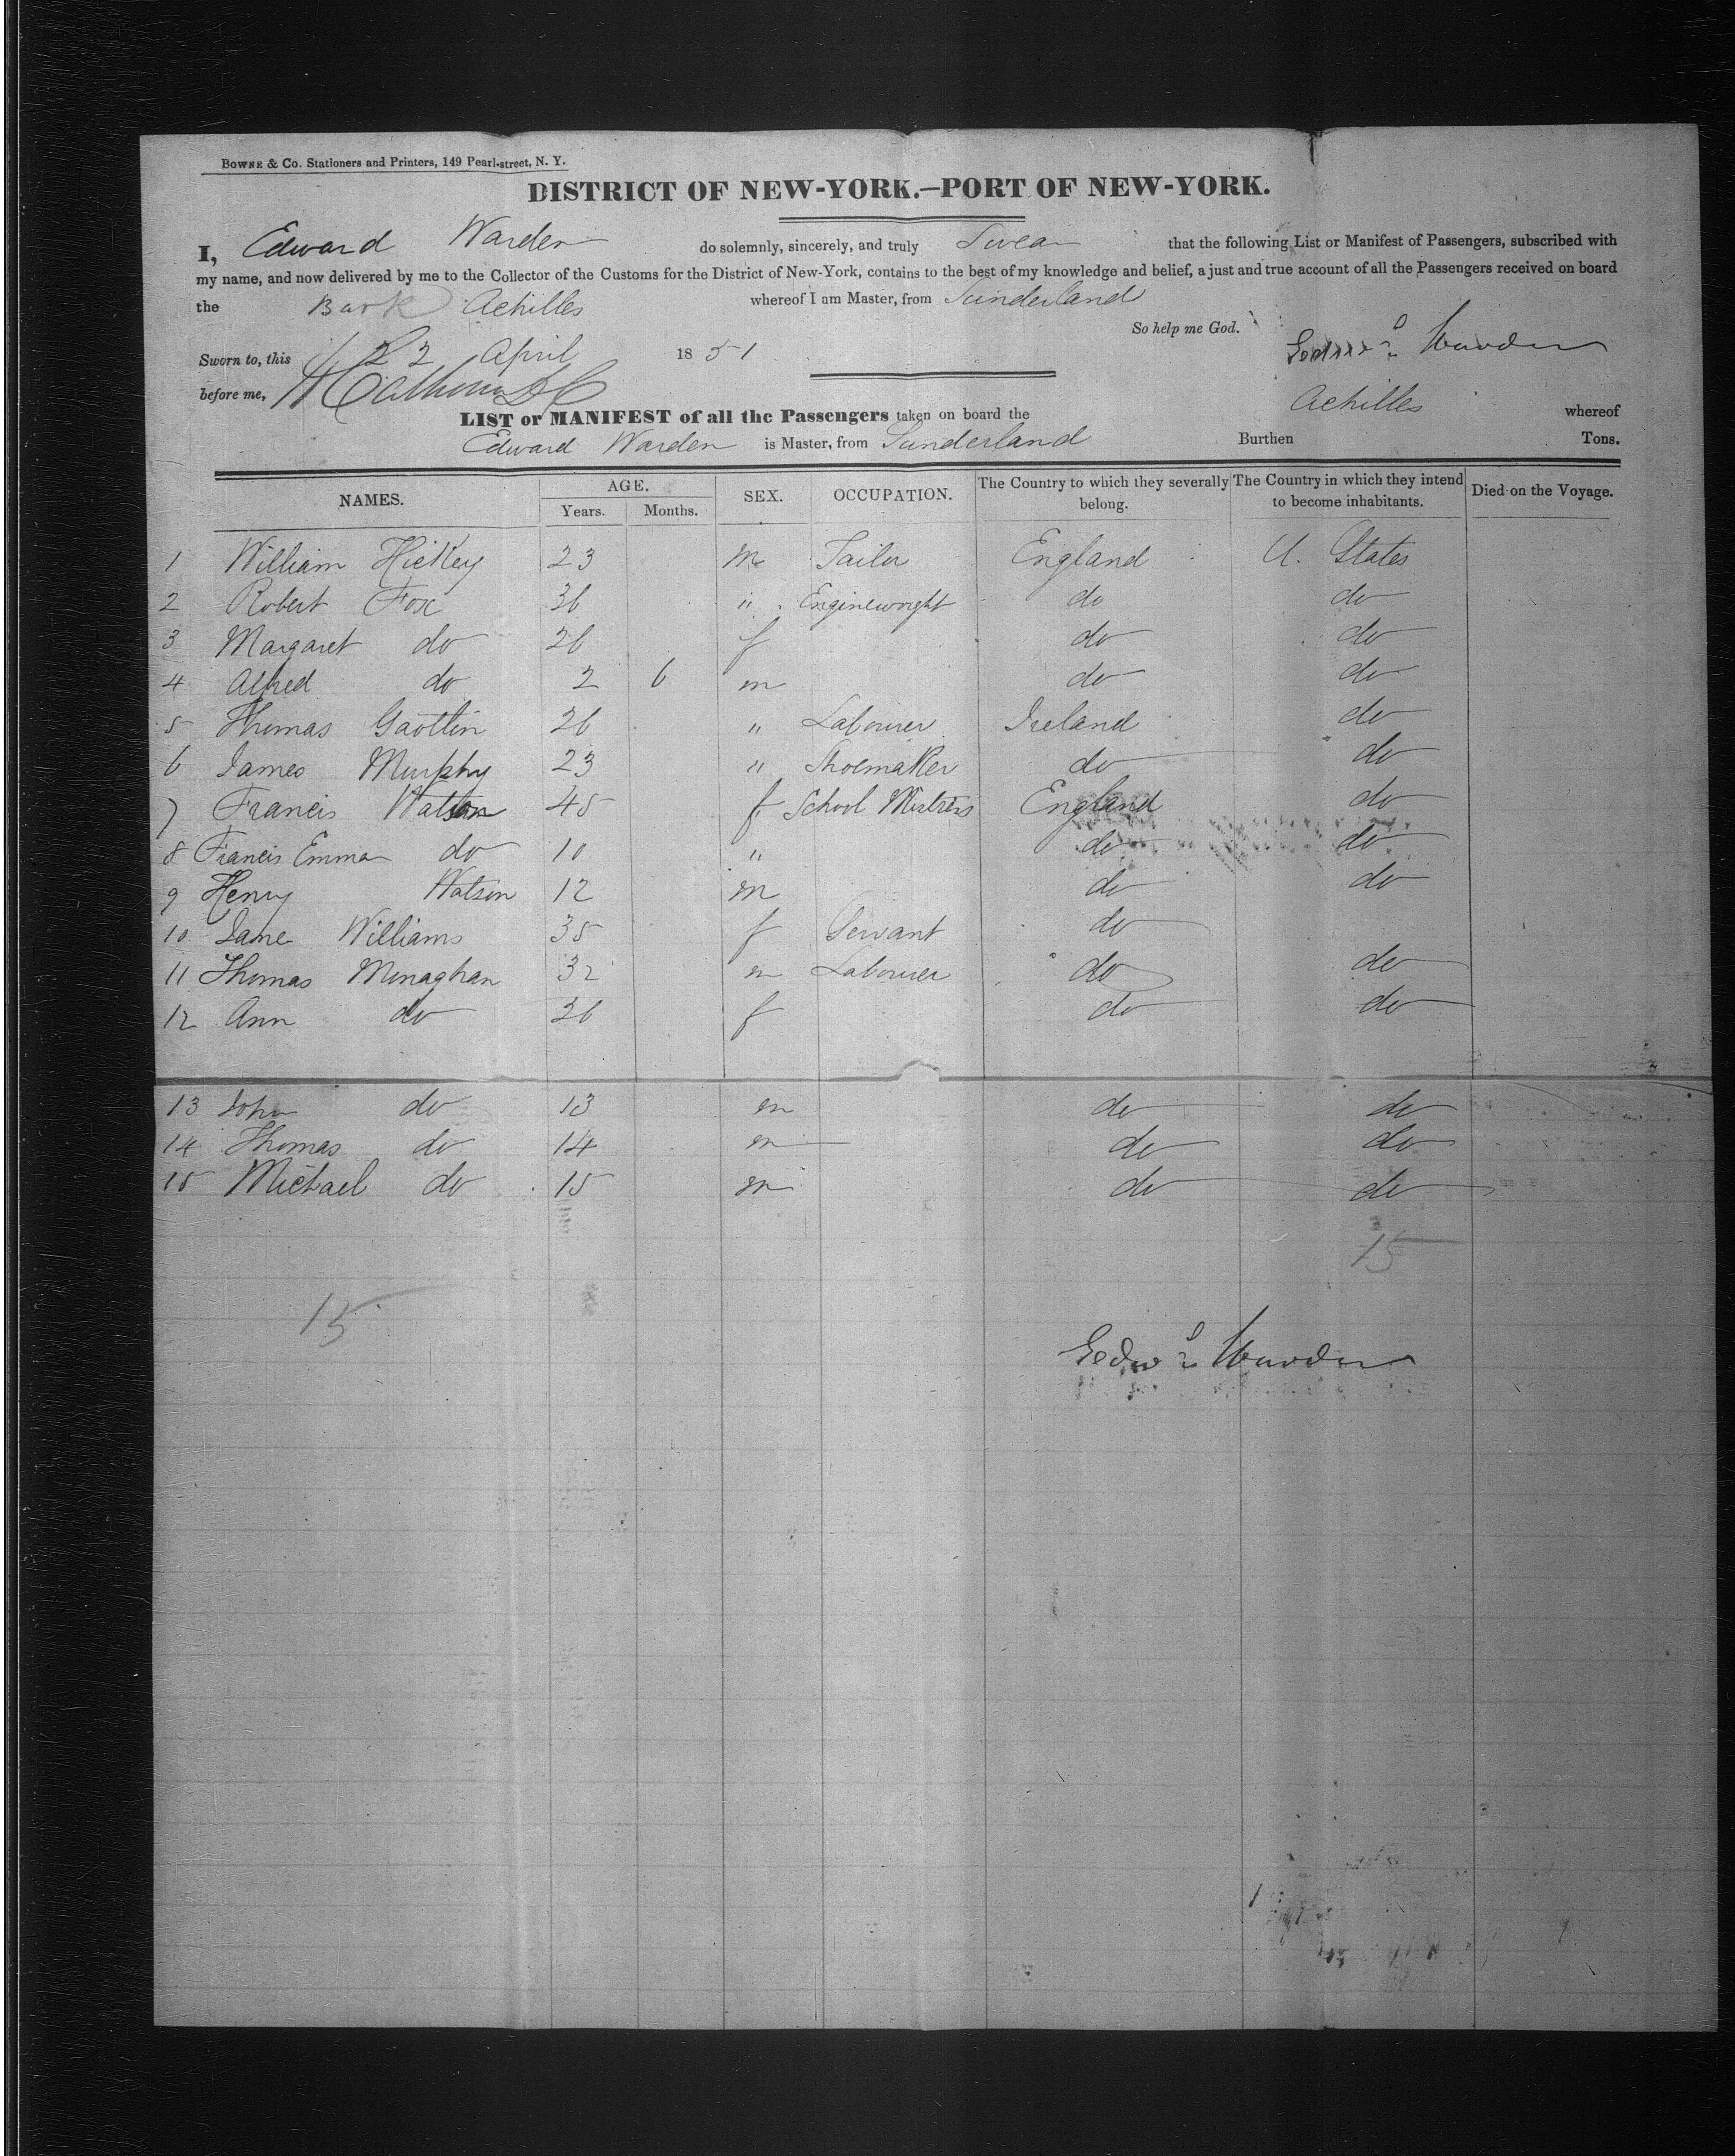 BOWNE & Co. Stationers and Printers, 149 Pearl-street, N. Y.
DISTRICT OF NEW-YORK.—PORT OF NEW-YORK.
I, Edward Warden do solemnly, sincerely, and truly Swear that the following List or Manifest of Passengers, subscribed with
my name, and now delivered by me to the Collector of the Customs for the District of New-York, contains to the best of my knowledge and belief, a just and true account of all the Passengers received on board
the Bark Achilles whereof I am Master, from Sunderland
So help me God.
Sworn to, this 22 April 1851 Edwd Warden
before me,
LIST or MANIFEST of all the Passengers taken on board the Achilles whereof
Edward Warden is Master, from Sunderland Burthen Tons.
NAMES. AGE. Years. Months. SEX. OCCUPATION. The Country to which they severally belong. The Country in which they intend to become inhabitants. Died on the Voyage.
1 William Hickey 23 m Tailor England U. States
2 Robert Fox 36 " Enginewright do do
3 Margaret do 26 f do do
4 Alfred do 2 6 m do do
5 Thomas Gaottin 26 " Labourer Ireland do
6 James Murphy 23 " Shoemaker do do
7 Francis Watson 45 f School Mistress England do
8 Francis Emma do 10 " do do
9 Henry Watson 12 m do do
10 Jane Williams 35 f Servant do
11 Thomas Monaghan 32 m Labourer do do
12 Ann do 36 f do do
13 John do 13 m do do
14 Thomas do 14 m do do
15 Michael do 15 m do do
15
15
Edwd Warden